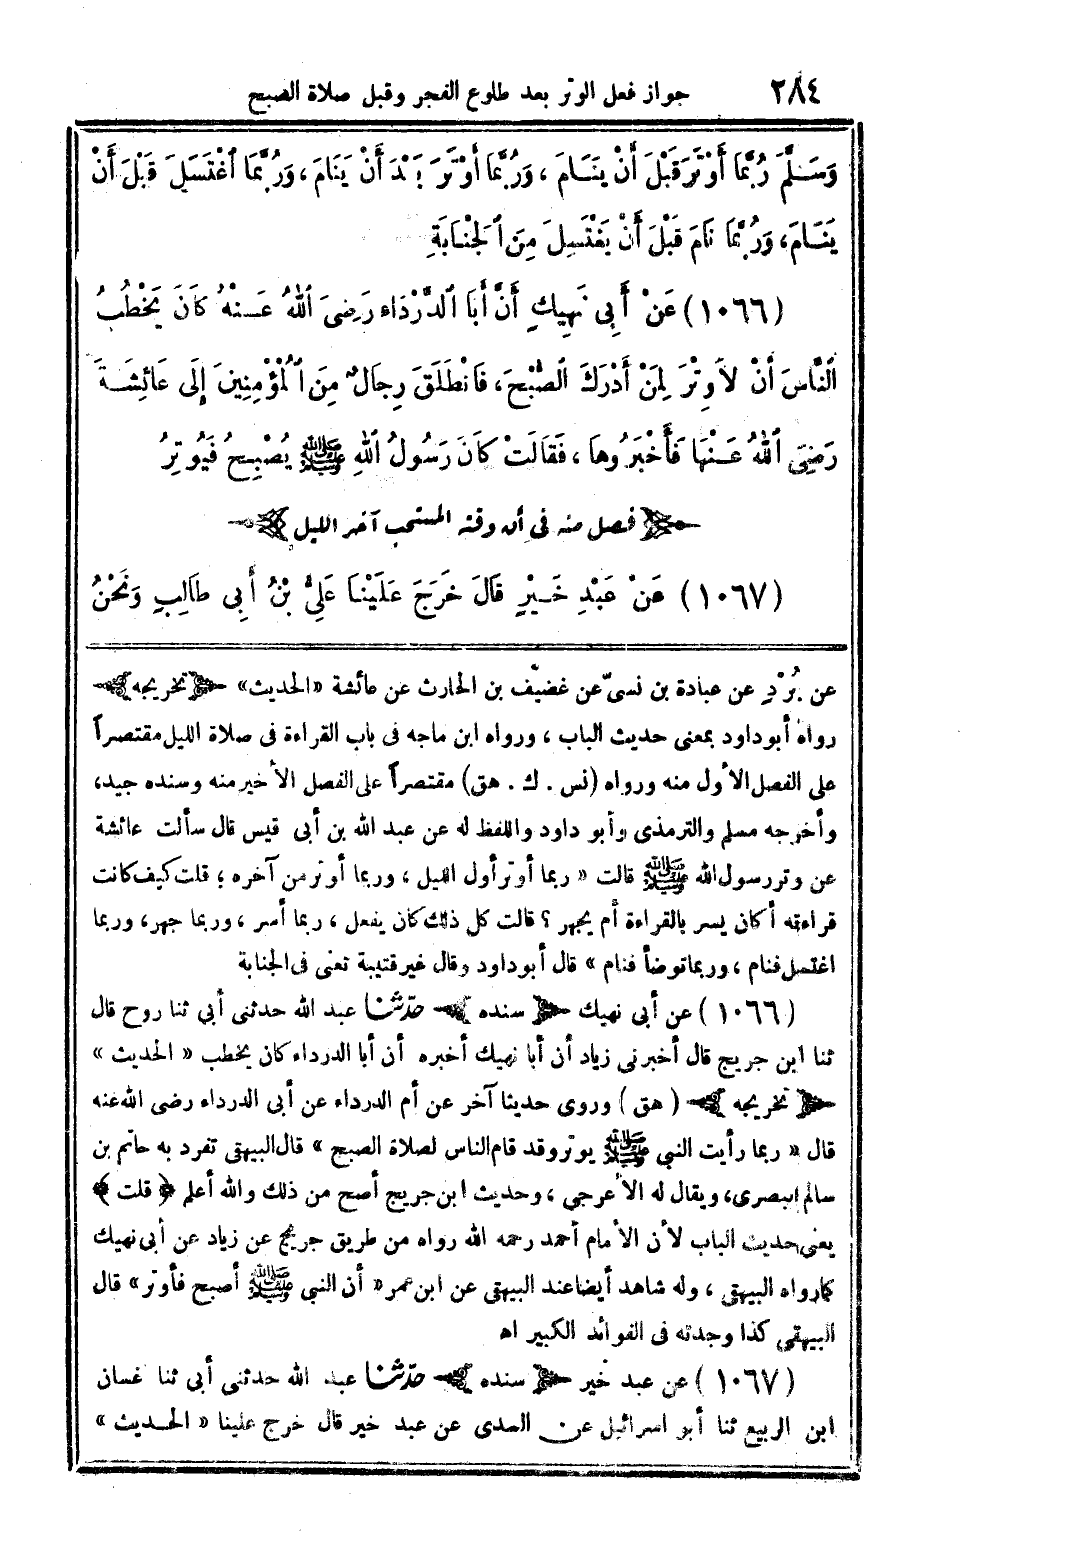 ٢٨٤ جواز فعل الوتر بعد طلوع الفجر وقبل صلاة الصبح
وَسَلَّمَ رُبَّمَا أَوْتَرَ قَبْلَ أَنْ يَنَامَ ، وَرُبَّمَا أَوْتَرَ بَعْدَ أَنْ يَنَامَ ، وَرُبَّمَا ٱغْتَسَلَ قَبْلَ أَنْ
يَنَامَ، وَرُبَّمَا نَامَ قَبْلَ أَنْ يَغْتَسِلَ مِنَ ٱلْجَنَابَةِ
(١٠٦٦) عَنْ أَبِي نَهِيكٍ أَنَّ أَبَا ٱلدَّرْدَاء رَضِىَ ٱللهُ عَنْهُ كَانَ يَخْطُبُ
ٱلنَّاسَ أَنْ لاَ وِتْرَ لِمَنْ أَدْرَكَ ٱلصُّبْحَ، فَانْطَلَقَ رِجَالٌ مِنَ ٱلْمُؤْمِنِينَ إِلَى عَائِشَةَ
رَضِيَ ٱللهُ عَنْهَا فَأَخْبَرُوهَا ، فَقَالَتْ كَانَ رَسُولُ ٱللهِ ﷺ يُصْبِحُ فَيُوتِرُ
فصل منه فى أن وقته المستحب آخر الليل
(١٠٦٧) عَنْ عَبْدِ خَيْرٍ قَالَ خَرَجَ عَلَيْنَا عَلِيُّ بْنُ أَبِى طَالِبٍ وَنَحْنُ
عن بُرْدٍ عن عبادة بن نسىّ عن غضيف بن الحارث عن عائشة «الحديث» ﴿تخريجه﴾
رواه أبو داود بمعنى حديث الباب ، ورواه ابن ماجه فى باب القراءة فى صلاة الليل مقتصراً
على الفصل الأول منه ورواه (نس . ك . هق) مقتصراً على الفصل الأخير منه وسنده جيد،
وأخرجه مسلم والترمذى وأبو داود واللفظ له عن عبد الله بن أبى قيس قال سألت عائشة
عن وتر رسول الله ﷺ قالت « ربما أوتر أول الليل ، وربما أوتر من آخره ؛ قلت كيف كانت
قراءته أكان يسر بالقراءة أم يجهر ؟ قالت كل ذلك كان يفعل ، ربما أسر ، وربما جهر، وربما
اغتسل فنام ، وربما توضأ فنام » قال أبو داود وقال غير قتيبة تعنى فى الجنابة
(١٠٦٦) عن أبى نهيك ﴿ سنده ﴾ حدّثنا عبد الله حدثنى أبي ثنا روح قال
ثنا ابن جريج قال أخبرنى زياد أن أبا نهيك أخبره أن أبا الدرداء كان يخطب « الحديث »
﴿ تخريجه ﴾ ( هق ) وروى حديثا آخر عن أم الدرداء عن أبى الدرداء رضى الله عنه
قال « ربما رأيت النبي ﷺ يوتر وقد قام الناس لصلاة الصبح » قال البيهقى تفرد به حاتم بن
سالم البصرى، ويقال له الأعرجي ، وحديث ابن جريج أصح من ذلك والله أعلم ﴿ قلت ﴾
يعنى حديث الباب لأن الأمام أحمد رحمه الله رواه من طريق جريج عن زياد عن أبى نهيك
كما رواه البيهقى ، وله شاهد أيضا عند البيهقى عن ابن عمر « أن النبي ﷺ أصبح فأوتر » قال
البيهقي كذا وجدته فى الفوائد الكبير اه
(١٠٦٧) عن عبد خير ﴿ سنده ﴾ حدّثنا عبد الله حدثنى أبى ثنا غسان
ابن الربيع ثنا أبو اسرائيل عن السدى عن عبد خير قال خرج علينا « الحديث »